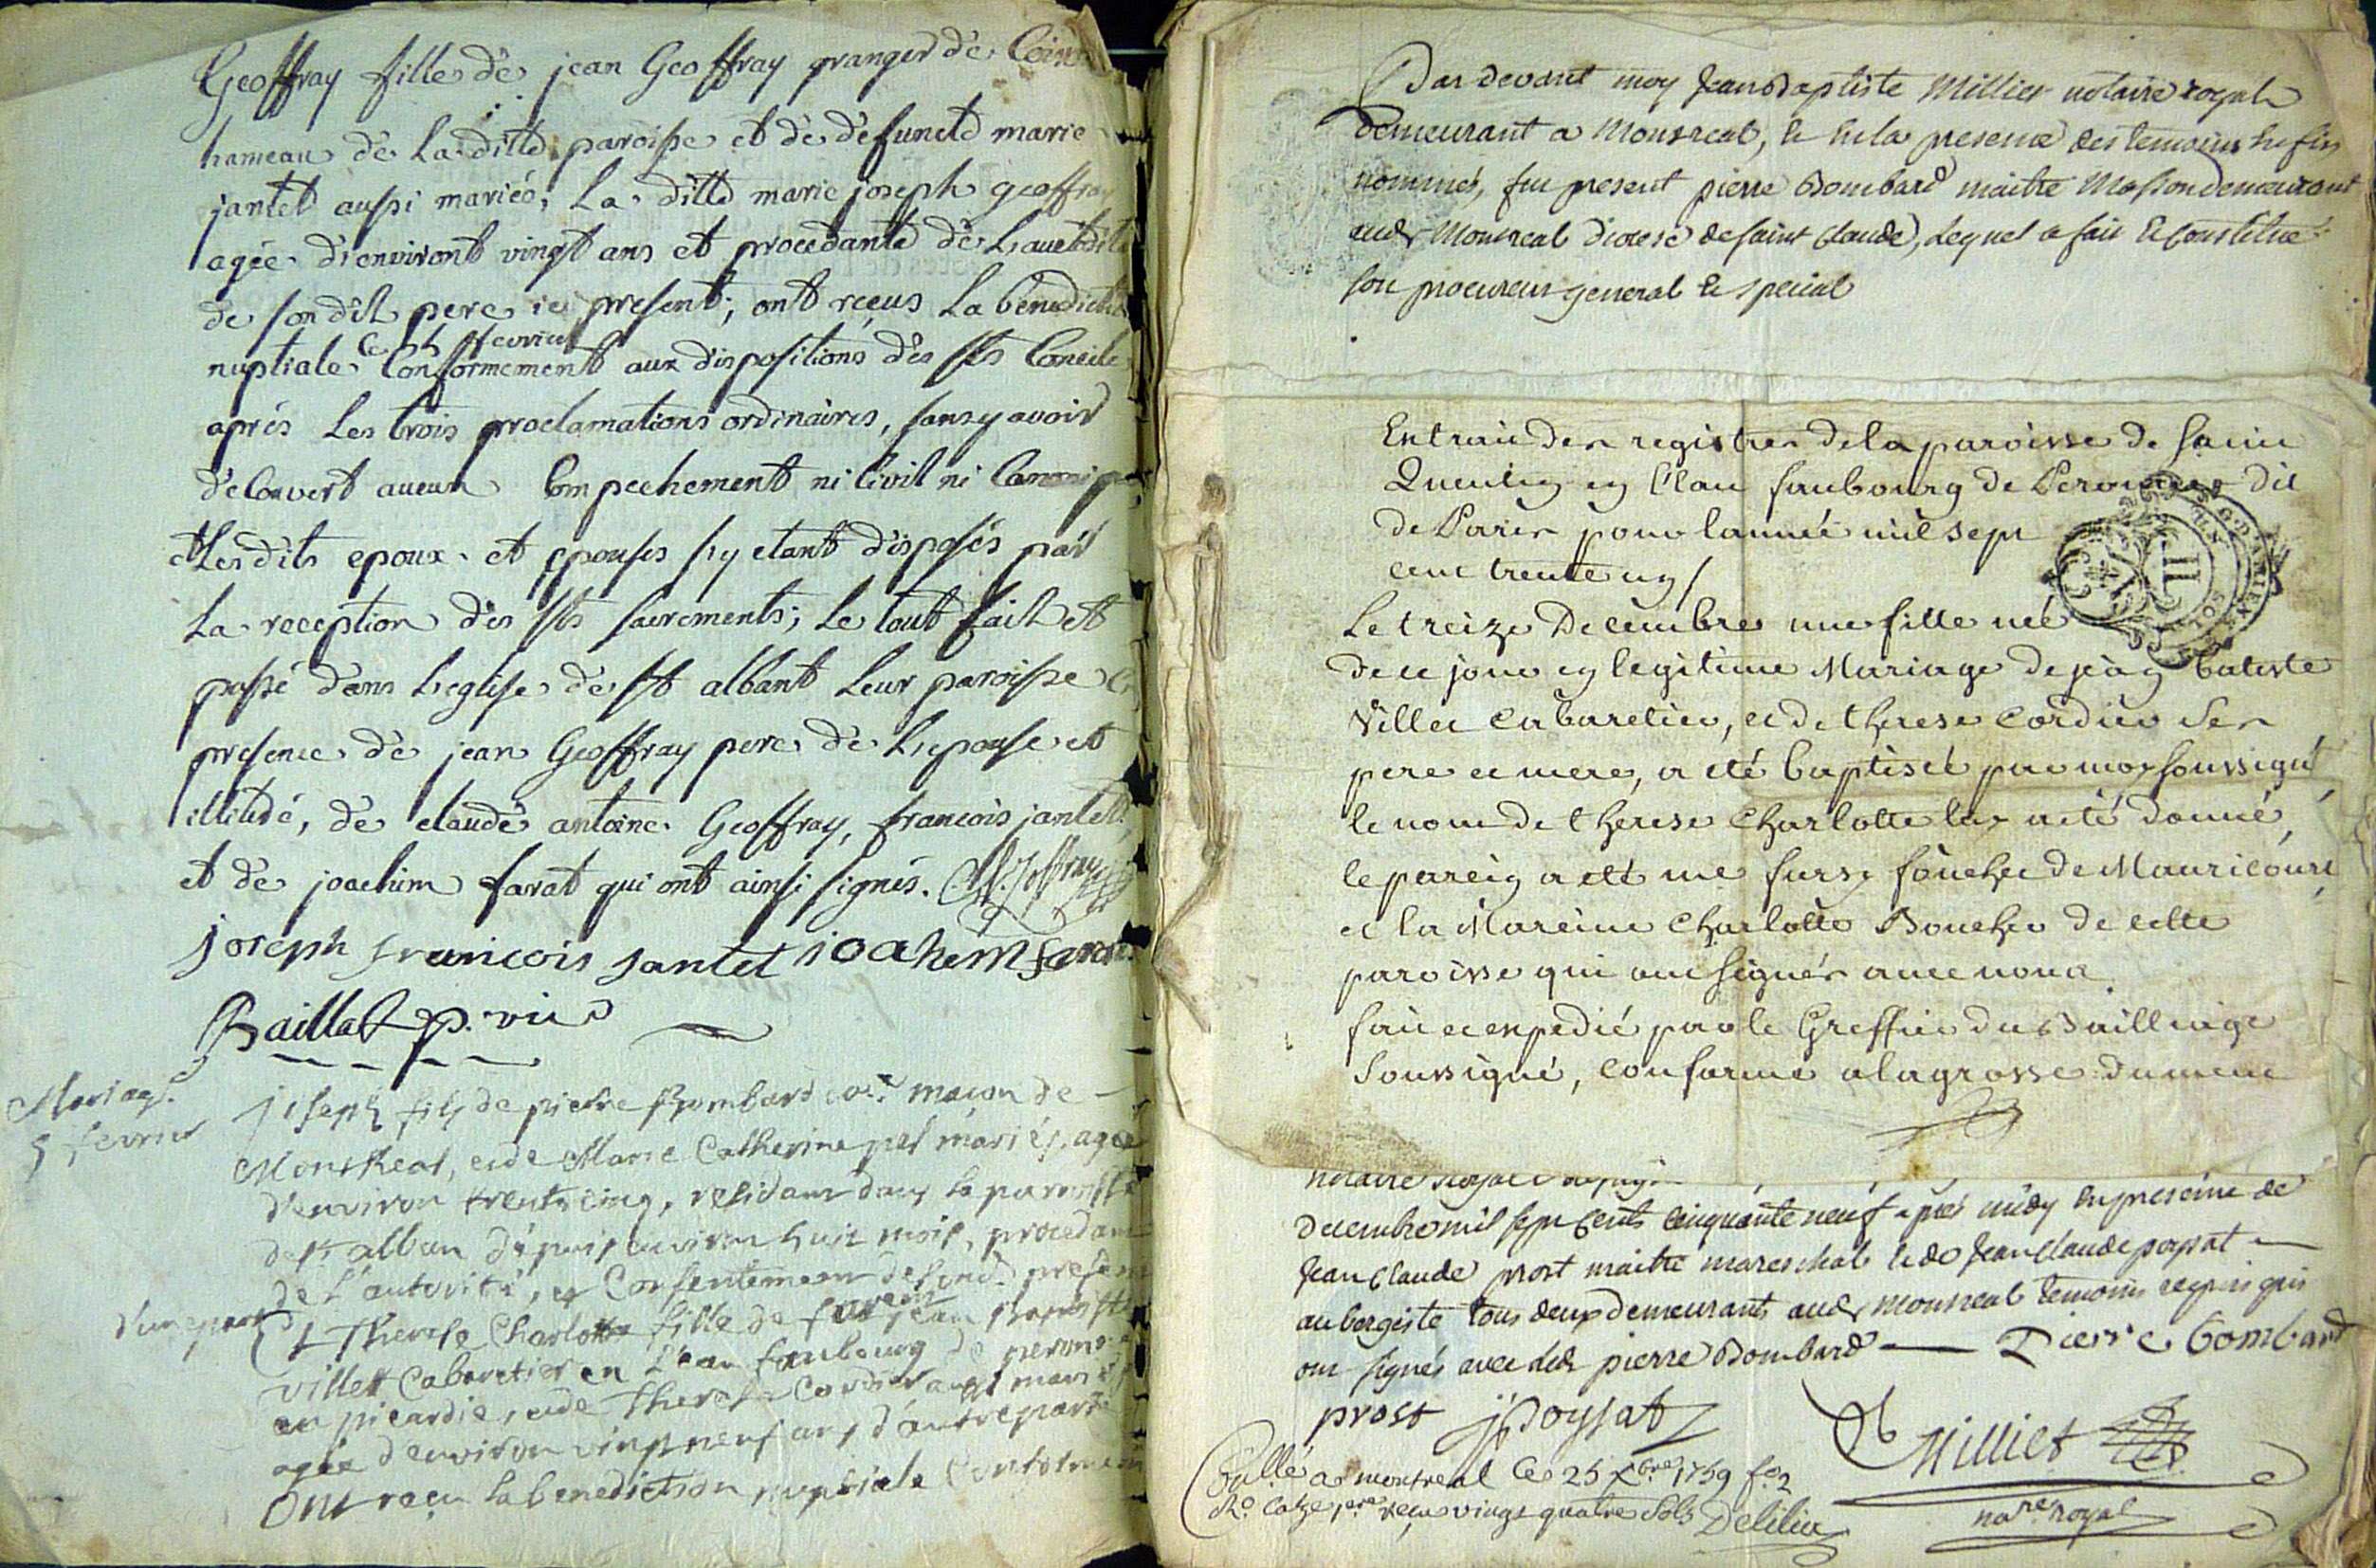 Geoffray fille de jean Geoffray granger de
hameau de La ditte paroisse et de defuncte marie
jantet aussi mariés, La ditte marie joseph geoffray
agée d'environt vingt ans et procedante de L'auctorité
de son dit pere ici present; ont reçus La benediction
ce 5 fevrier
nuptiale Conformement aux dispositions des Sts Concile
aprés Les trois proclamations ordinaires, sans y avoir
decouvert aucun Empechement ni Civil ni Canonique
et Lesdits epoux et epouses s'y etant disposés par
La reception des Sts sacrements; Le tout fait et
passé dans L'eglise de St albant Leur paroisse
presence de jean Geoffray pere de L'epouse et
illitéré, de claude antoine Geoffray, francois jantet
et de joachim farat qui ont ainsi signés. Joffray
joseph franicois jantet ioachim farat
Baillat p. vic
Mariage
5 fevrier
joseph fils de pierre Bombard me maçon de
Montreal, et de Marie Catherine pet mariés, agée
d'environ trente cinq, residant dans la paroisse
de st alban depuis environ huit mois, procedant
de l'autorité, et Consentement de son d. present
d'une part
Et Therese Charlotte fille de jean Baptiste
villet Cabaretier en l'eau faubourg de peronne
en picardie, et de Therese Cordier aussi mariés
agée d'environ vingt neuf ans d'autre part
Ont reçu la benediction nuptiale Conformement
Par devant moy Jean Baptiste Milliet notaire royal
demeurant a Montreal, & en la presence des temoins enfin
nommés, fut present pierre Bombard maitre Masson demeurant
aud Montreal diocese de saint Claude, Lequel a fait & Constitué
son procureur general & special
Extrait des registres de la paroisse de Saint
Quentin en l'eau faubourg de Peronne dit
de Paris pour l'année mil sept
cent trente un /
Le treize Decembre une fille née
de ce jour en legitime Mariage de jean batiste
Villet Cabaretier, et de therese Cordier Ses
pere et mere, a été baptisée par moy soussigné,
le nom de therese Charlotte luy a été donné,
le parein a été me fursy foucher de Mauricourt,
et la Mareine Charlotte Boucher de cette
paroisse qui ont signés avec nous
fait et expedié par le Greffier du Bailliage
Soussigné, Conforme a la grosse dument
notaire royal
decembre mil sept cents cinquante neuf apres midy en presence de
Jean Claude prost maitre mareschal & de Jean Claude poysat
aubergiste tous deux demeurants aud Montreal temoins requis qui
ont signés avec led pierre Bombard — Pierre bombard
prost jPoysat
Milliet
nore royal
Cullé a montreal le 25 Xbre 1759 fo 2
Ro Catze pere reçu vingt quatre sols Delilia